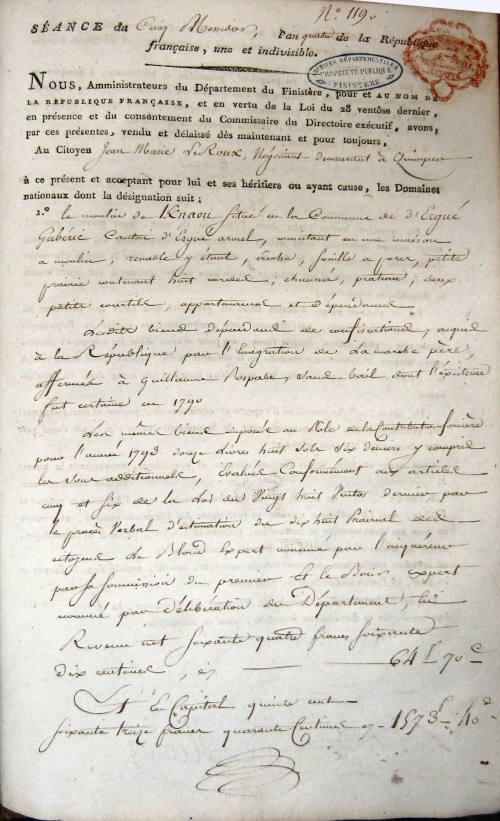 N.º 119.
SÉANCE du Cinq Messidor, l'an quatre de la République
française, une et indivisible.
ARCHIVES DÉPARTEMENTALES
PROPRIÉTÉ PUBLIQUE
FINISTÈRE
NOUS, Administrateurs du Département du Finistère, pour et AU NOM DE
LA RÉPUBLIQUE FRANÇAISE, et en vertu de la Loi du 28 ventôse dernier,
en présence et du consentement du Commissaire du Directoire exécutif, avons,
par ces présentes, vendu et délaissé dès maintenant et pour toujours,
Au Citoyen Jean Marie Le Roux, Négociant demeurant à Quimper
à ce présent et acceptant pour lui et ses héritiers ou ayant cause, les Domaines
nationaux dont la désignation suit :
1.º le moulin de Knaou situé en la Commune de d'Ergué
Gabéric Canton d'Ergué armel, consistant en une maison
à moulin, renable y étant, crèche, prairie
contenant huit chaussée, deux
petits courtils, appartenances et dépendances
Lesdits biens dépendants de confiscations, acquis
à la République par l'Emigration de Lamarche père,
affermés à Guillaume Rospabe, sans bail dont l'existence
fut certaine en 1790
Les mêmes biens imposés au Rôle de la Contribution foncière
pour l'année 1793 douze Livres huit sols six deniers y compris
les sous additionnels, Evalués Conformément aux articles
cinq et six de la Loi du Vingt huit Ventose dernier par
le procès Verbal d'estimation du dix huit Prairial des
citoyens Le Blond Expert nommé par l'acquéreur
par sa soumission du premier Et le Bour Expert
nommé par délibération du Département, en
Revenu net soixante quatre francs soixante
dix centimes, cy 64 f. 70 c
Et En Capital quinze cent
soixante treize francs quarante Centimes cy 1573 f. 40 c